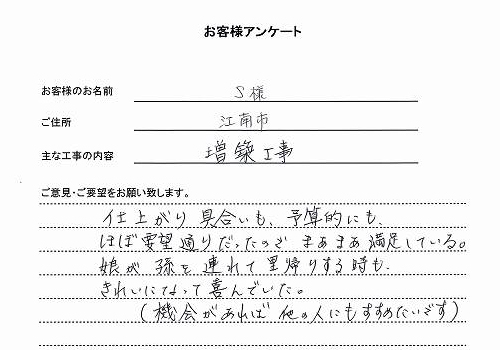 お客様アンケート
お客様のお名前 S様
ご住所 江南市
主な工事の内容 増築工事
ご意見・ご要望をお願い致します。
仕上がり具合いも、予算的にも、
ほぼ要望通りだったのでまあまあ満足している。
娘が孫を連れて里帰りする時も
きれいになって喜んでいた。
(機会があれば他の人にもすすめたいです)